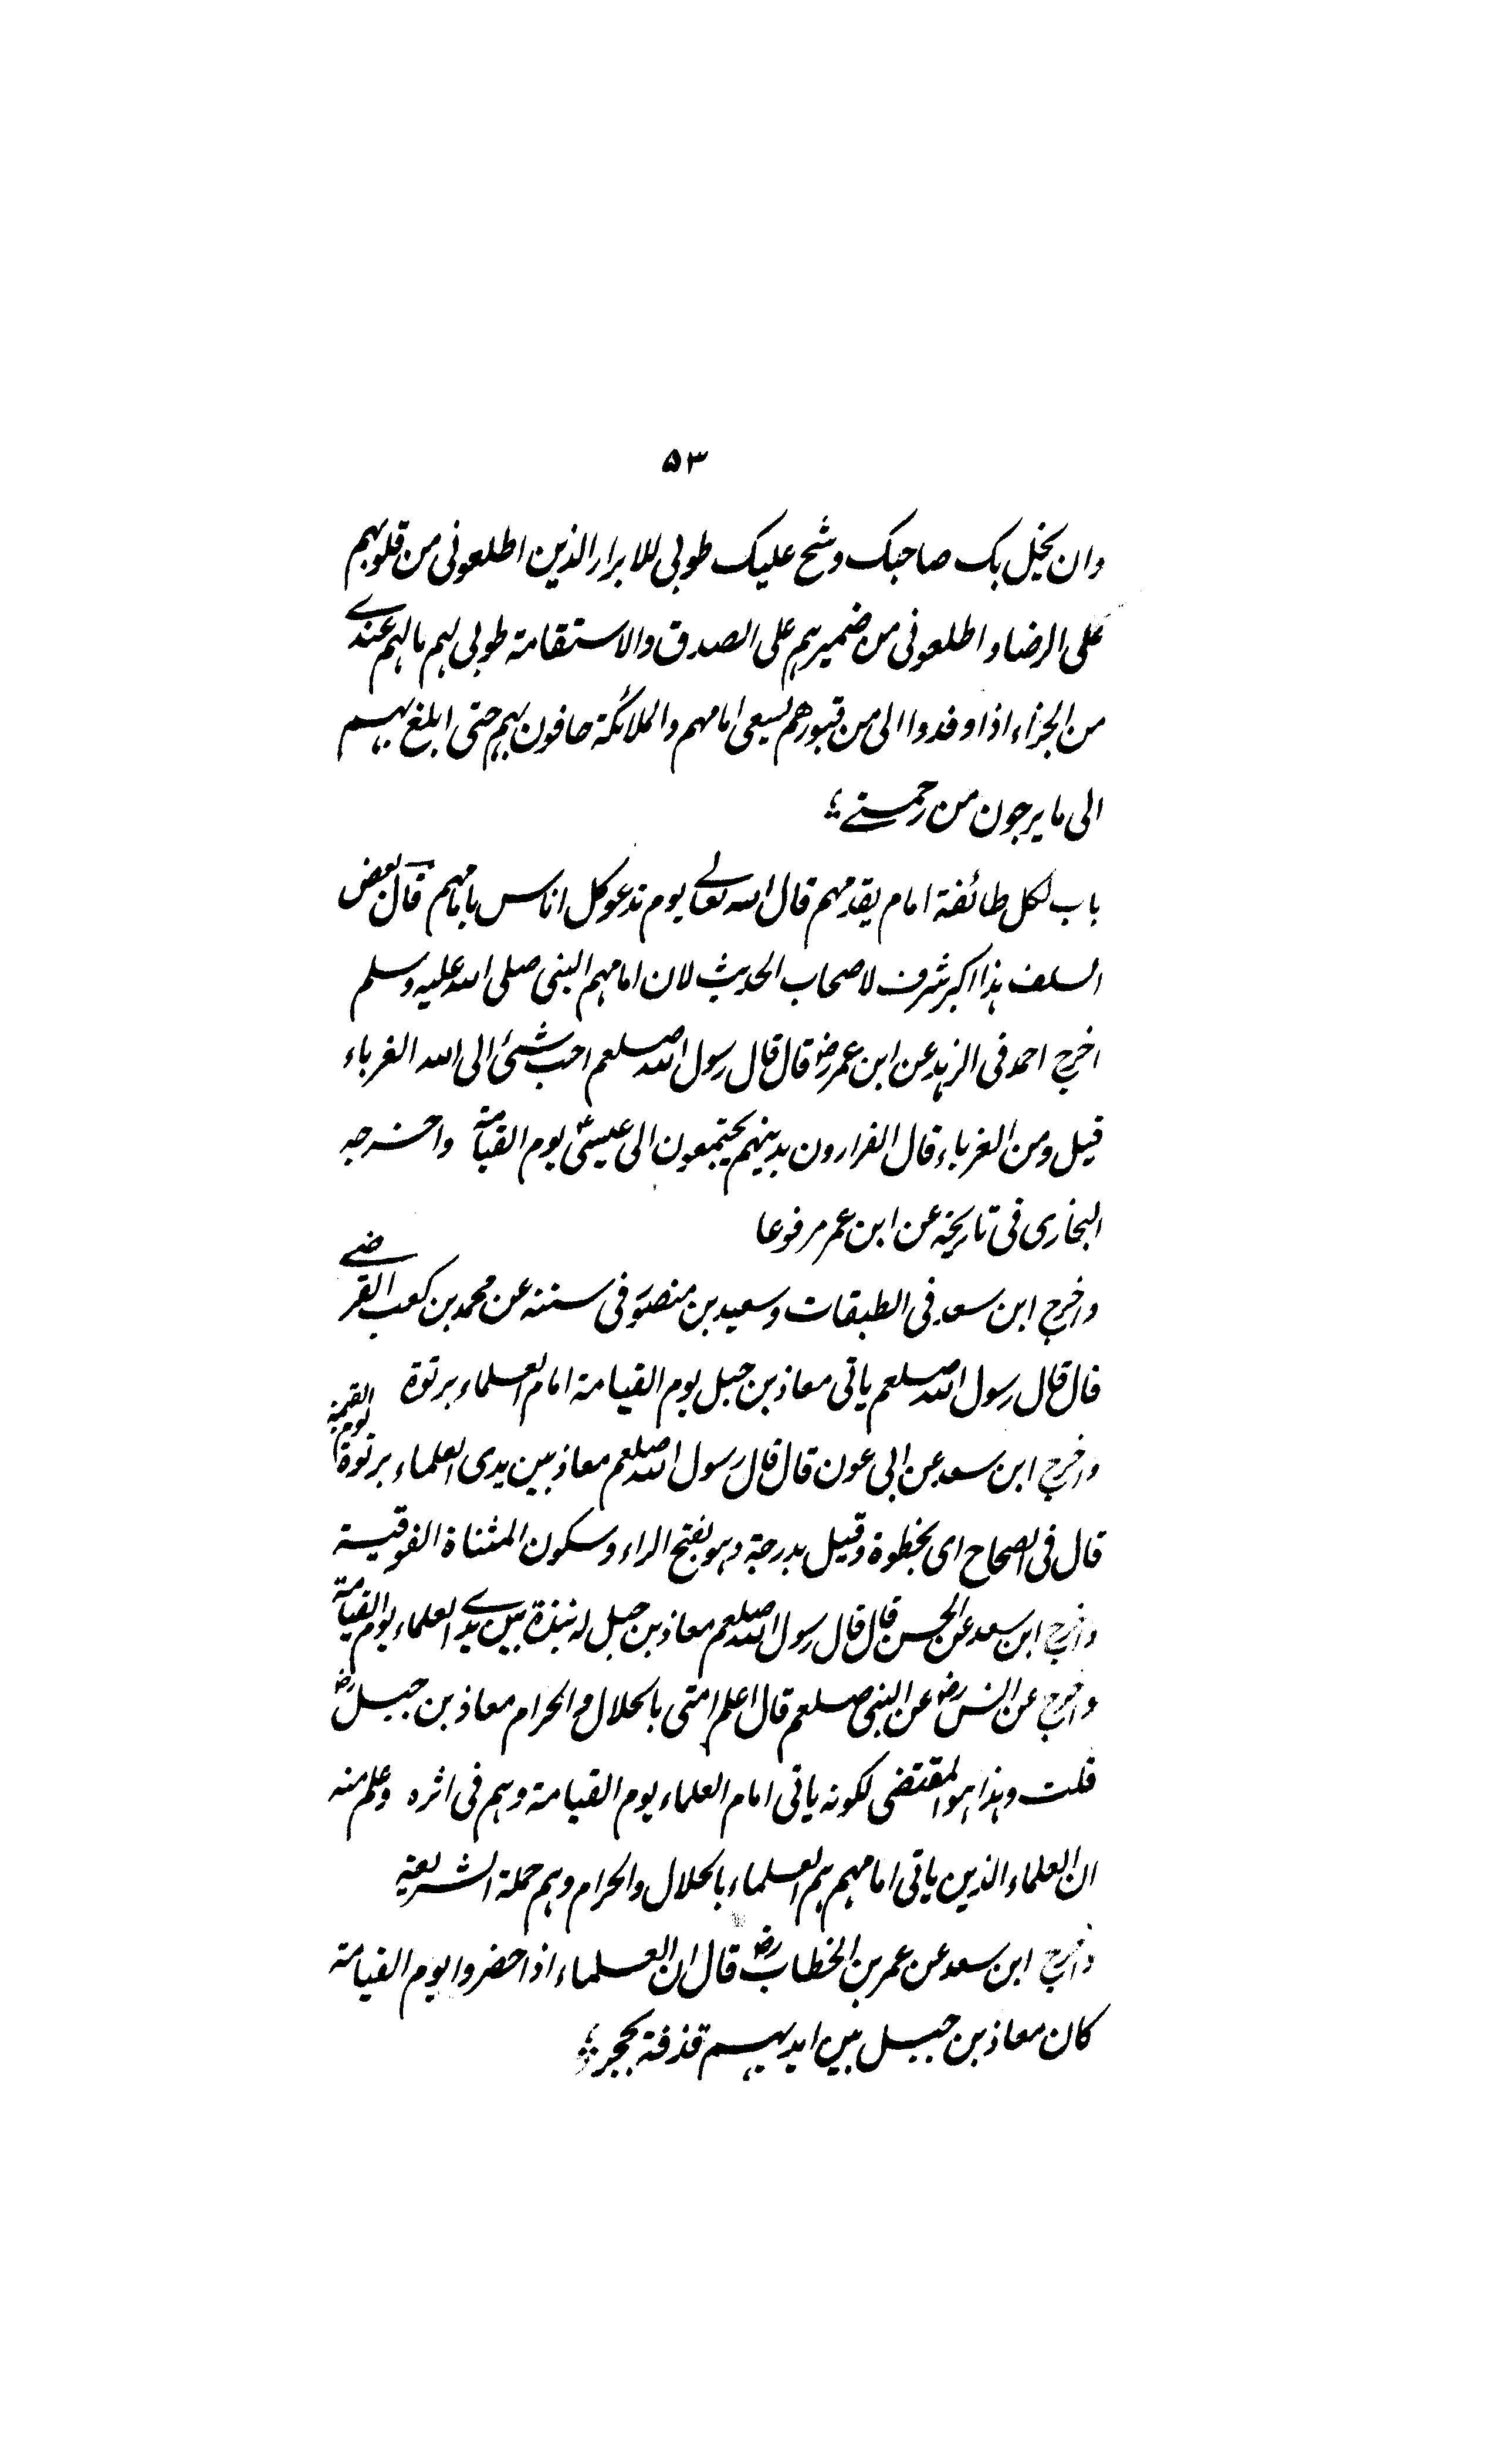 ۵۳
وان یخیل بک صاحبک وشح علیک طوبی للابرار الذین اطلعونی من قلوبہم
علی الرضا و اطلعونی من ضمیرہم علی الصدق والاستقامة طوبی لہم مالہم عندے
من الجزاء اذا وفدوا الی من قبورهم یسعی امامہم والملائکة حافون بہم حتی ابلغ بہم
الی ما یرجون من رحمتے؛
باب لکل طائفة امام یقدمہم قال اللہ تعالے یوم ندعو کل اناس بامامہم قال بعض
السلف ہذا اکبر شرف لاصحاب الحدیث لان امامہم النبی صلی اللہ علیہ وسلم
اخرج احمد فی الزہد عن ابن عمر رض قال قال رسول اللہ صلعم احب شئ الی اللہ الغرباء
قیل ومن الغرباء قال الفرارون بدینہم یجتمعون الی عیسیٰ یوم القیامة واخرجہ
البخاری فی تاریخہ عن ابن عمر مرفوعا
واخرج ابن سعد فی الطبقات وسعید بن منصور فی سننہ عن محمد بن کعب القرضے
قال قال رسول اللہ صلعم یاتی معاذ بن جبل یوم القیامة امام العلماء برتوة
واخرج ابن سعد عن ابی عون قال قال رسول اللہ صلعم معاذ بین یدی العلماء برتوة یوم القیمة
قال فی الصحاح ای بخطوة وقیل بدرجة وہو بفتح الراء وسکون المثناة الفوقیة
واخرج ابن سعد عن الحسن قال قال رسول اللہ صلعم معاذ بن جبل لہ نبذة بین یدے العلماء یوم القیامة
واخرج عن انس رض عن النبی صلعم قال اعلم امتی بالحلال والحرام معاذ بن جبل رض
قلت وہذا ہو المقتضی لکونہ یاتی امام العلماء یوم القیامة وہم فی اثرہ وعلم منہ
ان العلماء الذین یاتی امامہم ہم العلماء بالحلال والحرام وہم حملة الشریعة
واخرج ابن سعد عن عمر بن الخطاب رض قال ان العلماء اذا حضروا یوم القیامة
کان معاذ بن جبل بین ایدیہم قذفة بحجر؛